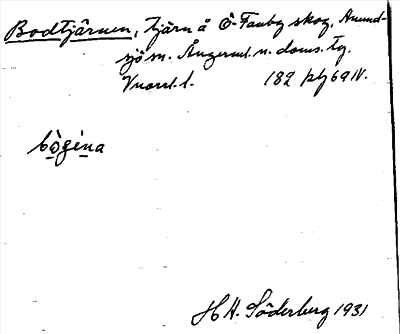 Bodtjärnen, tjärn å Ö-Fanby skog, Anund-
sjö sn. Ångerml. n. doms. tg.
182 69 IV.
bògi̇́na
H. H. Söderberg 1931